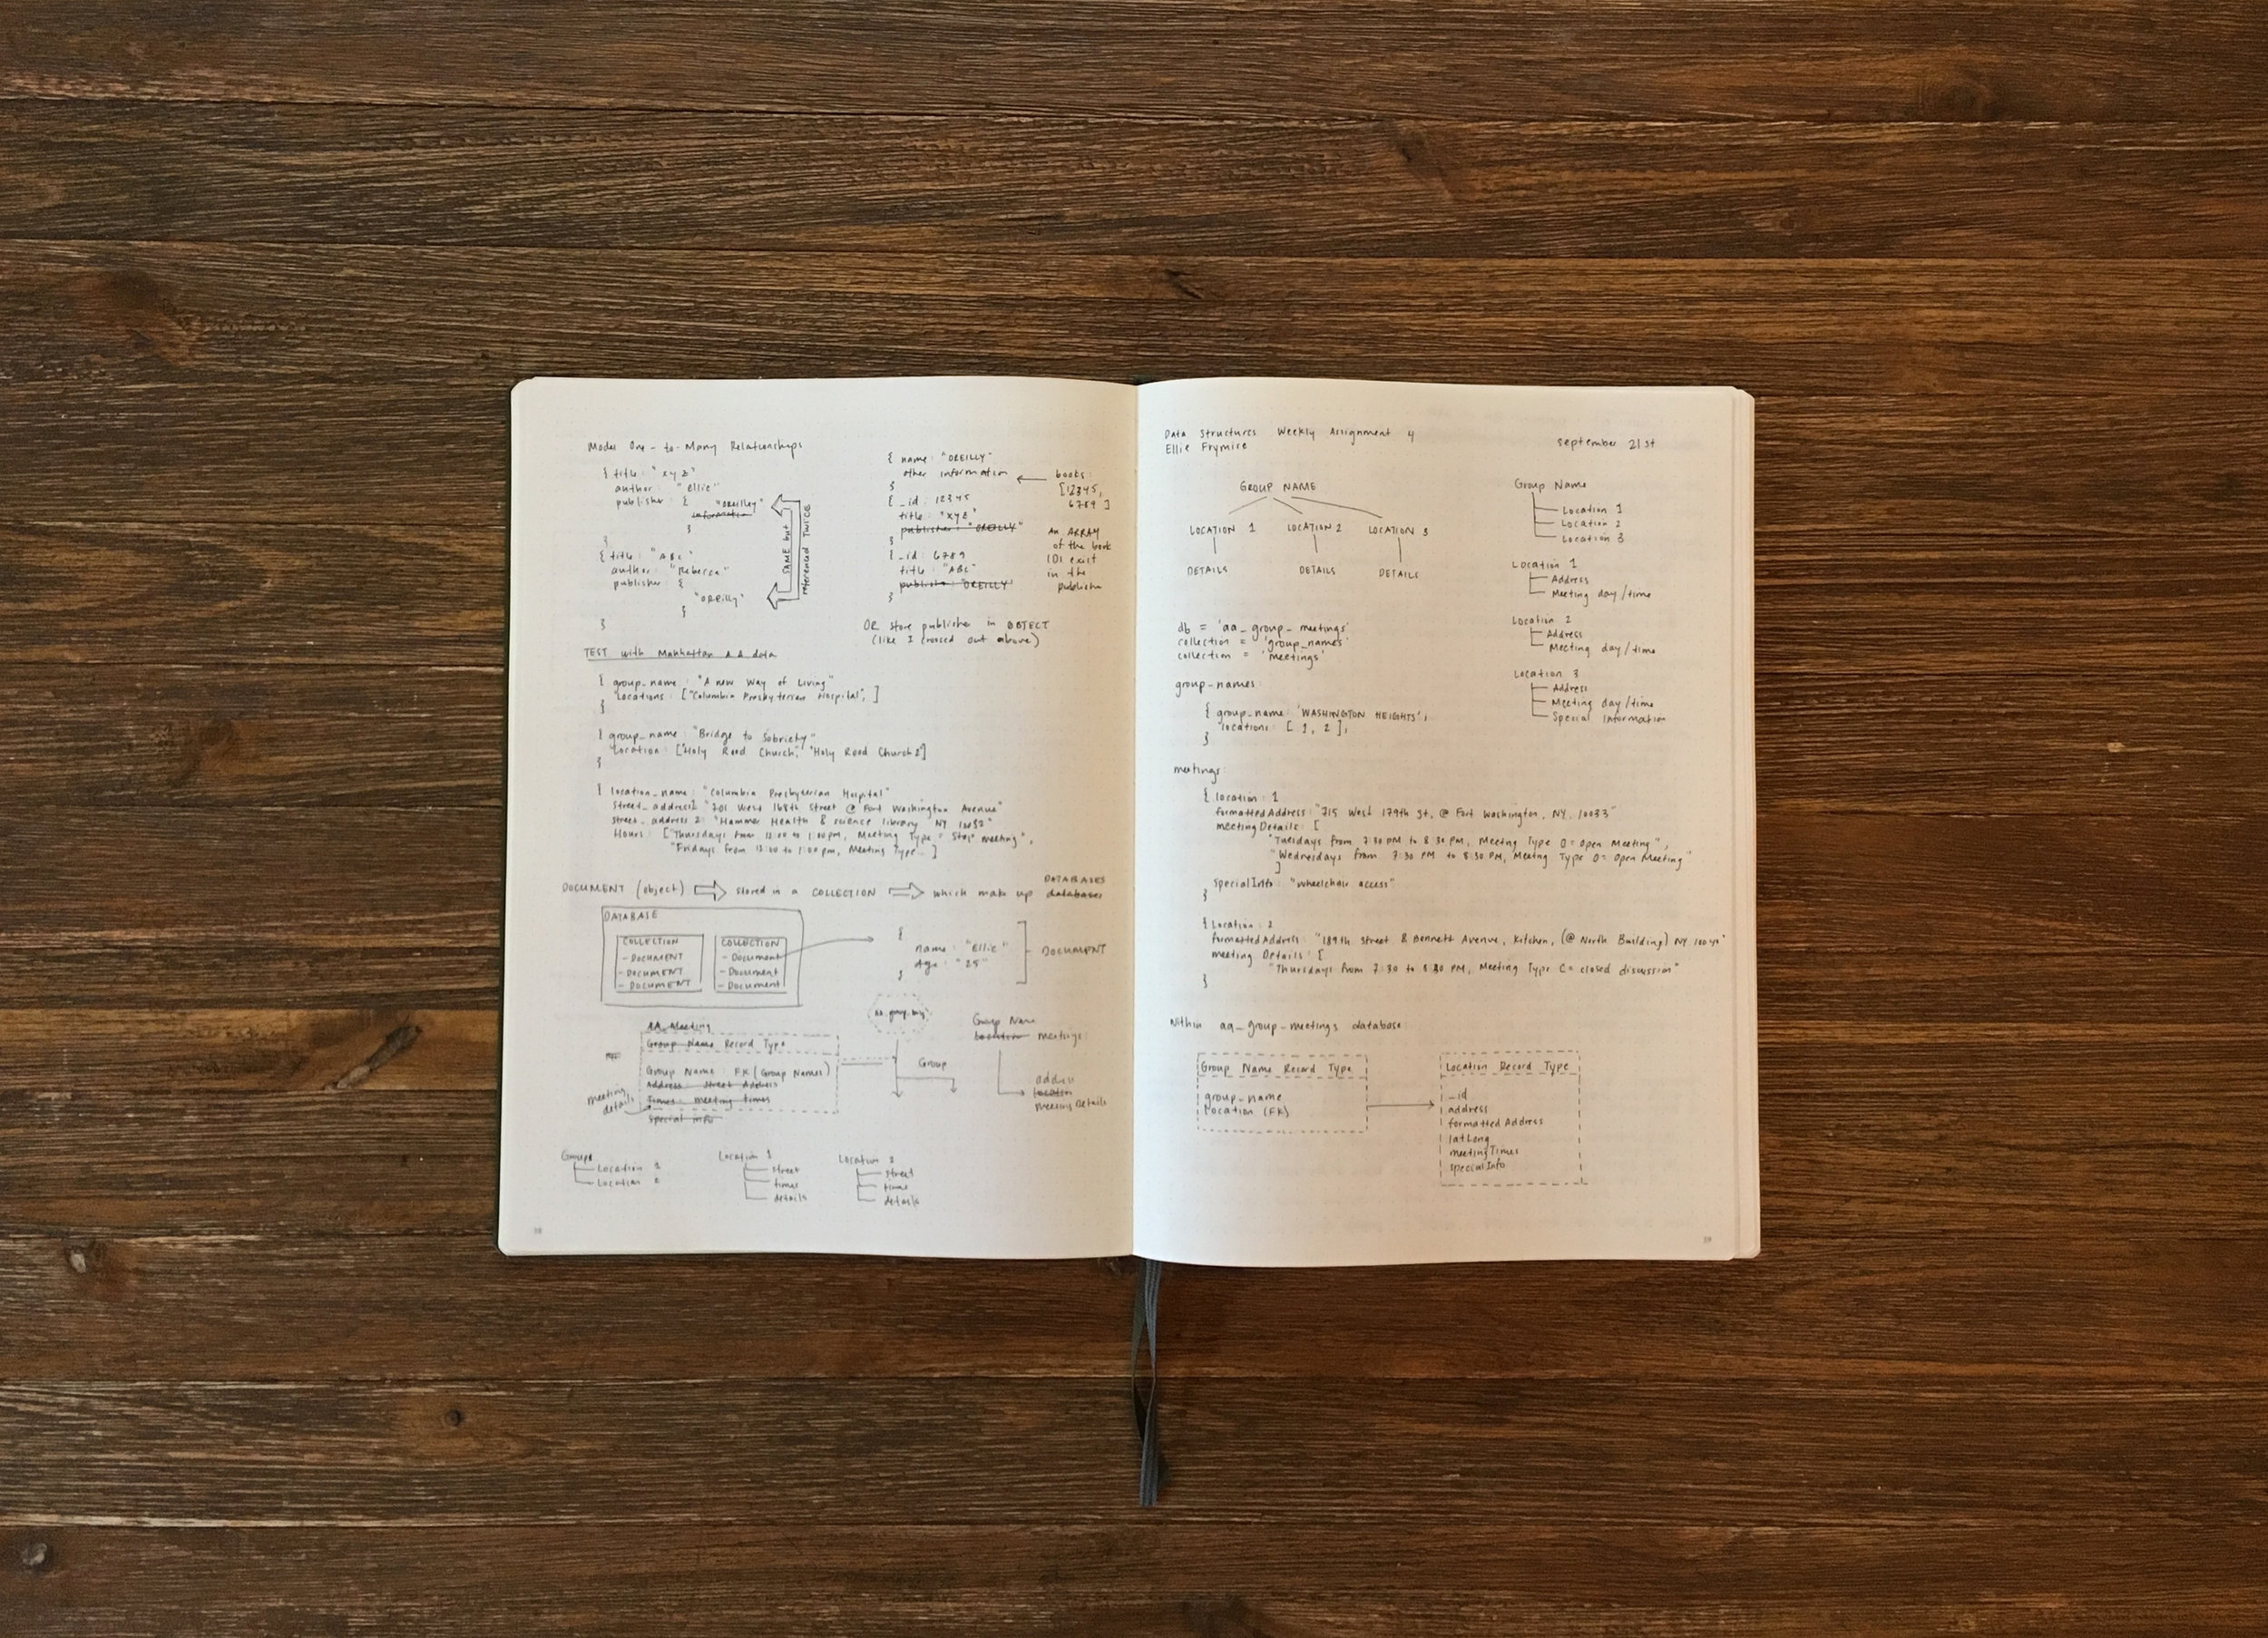 Model One-to-Many Relationships
{ title: "xyz"
author: "ellie"
publisher: { "OREILLEY"
}
}
{ title: "ABC"
author: "Rebecca"
publisher: {
"OREILLY"
}
}
SAME but
referenced TWICE
{ name: "OREILLY"
other information
}
{ _id: 12345
title: "xyz"
publisher: "OREILLY"
}
{ _id: 6789
title: "ABC"
publisher: "OREILLY"
}
books:
[12345,
6789]
An ARRAY
of the book
IDs exist
in the
publisher
OR store publisher in OBJECT
(like I crossed out above)
TEST with Manhattan AA data
{ group_name: "A new Way of Living"
locations: ["Columbia Presbyterian Hospital", ]
}
{ group_name: "Bridge to Sobriety"
location: ["Holy Rood Church", "Holy Rood Church2]
}
{ location_name: "Columbia Presbyterian Hospital"
street_address1: "701 West 168th Street @ Fort Washington Avenue"
street_address2: "Hammer Health & science library NY 10032"
Hours: ["Thursdays from 12:00 to 1:00pm, Meeting Type = Step meeting",
"Fridays from 12:00 to 1:00pm, Meeting Type... ]
DOCUMENT (object) ⇒ stored in a COLLECTION ⇒ which make up databases
DATABASES
DATABASE
COLLECTION
- DOCUMENT
- DOCUMENT
- DOCUMENT
COLLECTION
- Document
- Document
- Document
{
name: "Ellie"
Age: "25"
}
DOCUMENT
AA Meeting
Group Name Record Type
Group Name: FK (Group Names)
Address: Street Address
Times: meeting times
special info
meeting
details
Group
Group Name
location meetings:
address
location
meeting Details
Groups
Location 1
Location 2
Location 1
street
times
details
Location 2
street
times
details
Data Structures Weekly Assignment 4
Ellie Frymire
september 21st
GROUP NAME
LOCATION 1 LOCATION 2 LOCATION 3
DETAILS DETAILS DETAILS
Group Name
Location 1
Location 2
Location 3
Location 1
Address
Meeting day/time
Location 2
Address
Meeting day/time
Location 3
Address
Meeting day/time
Special Information
db = 'aa_group_meetings'
collection = 'group_names'
collection = 'meetings'
group_names:
{ group_name: 'WASHINGTON HEIGHTS',
locations: [ 1, 2 ],
}
meetings:
{ location: 1
formattedAddress: "715 West 179th St, @ Fort Washington, NY, 10033"
meetingDetails: [
"Tuesdays from 7:30 PM to 8:30 PM, Meeting Type O = Open Meeting",
"Wednesdays from 7:30 PM to 8:30 PM, Meeting Type O = Open Meeting"
]
specialInfo: "wheelchair access"
}
{ Location: 2
formattedAddress: "189th Street & Bennett Avenue, kitchen, (@ North Building) NY
meeting Details: [
"Thursdays from 7:30 to 8:30 PM, Meeting Type C = closed discussion"
}
Within aa_group_meetings database:
Group Name Record Type
group_name
location (FK)
Location Record Type
_id
address
formattedAddress
latLong
meetingTimes
specialInfo